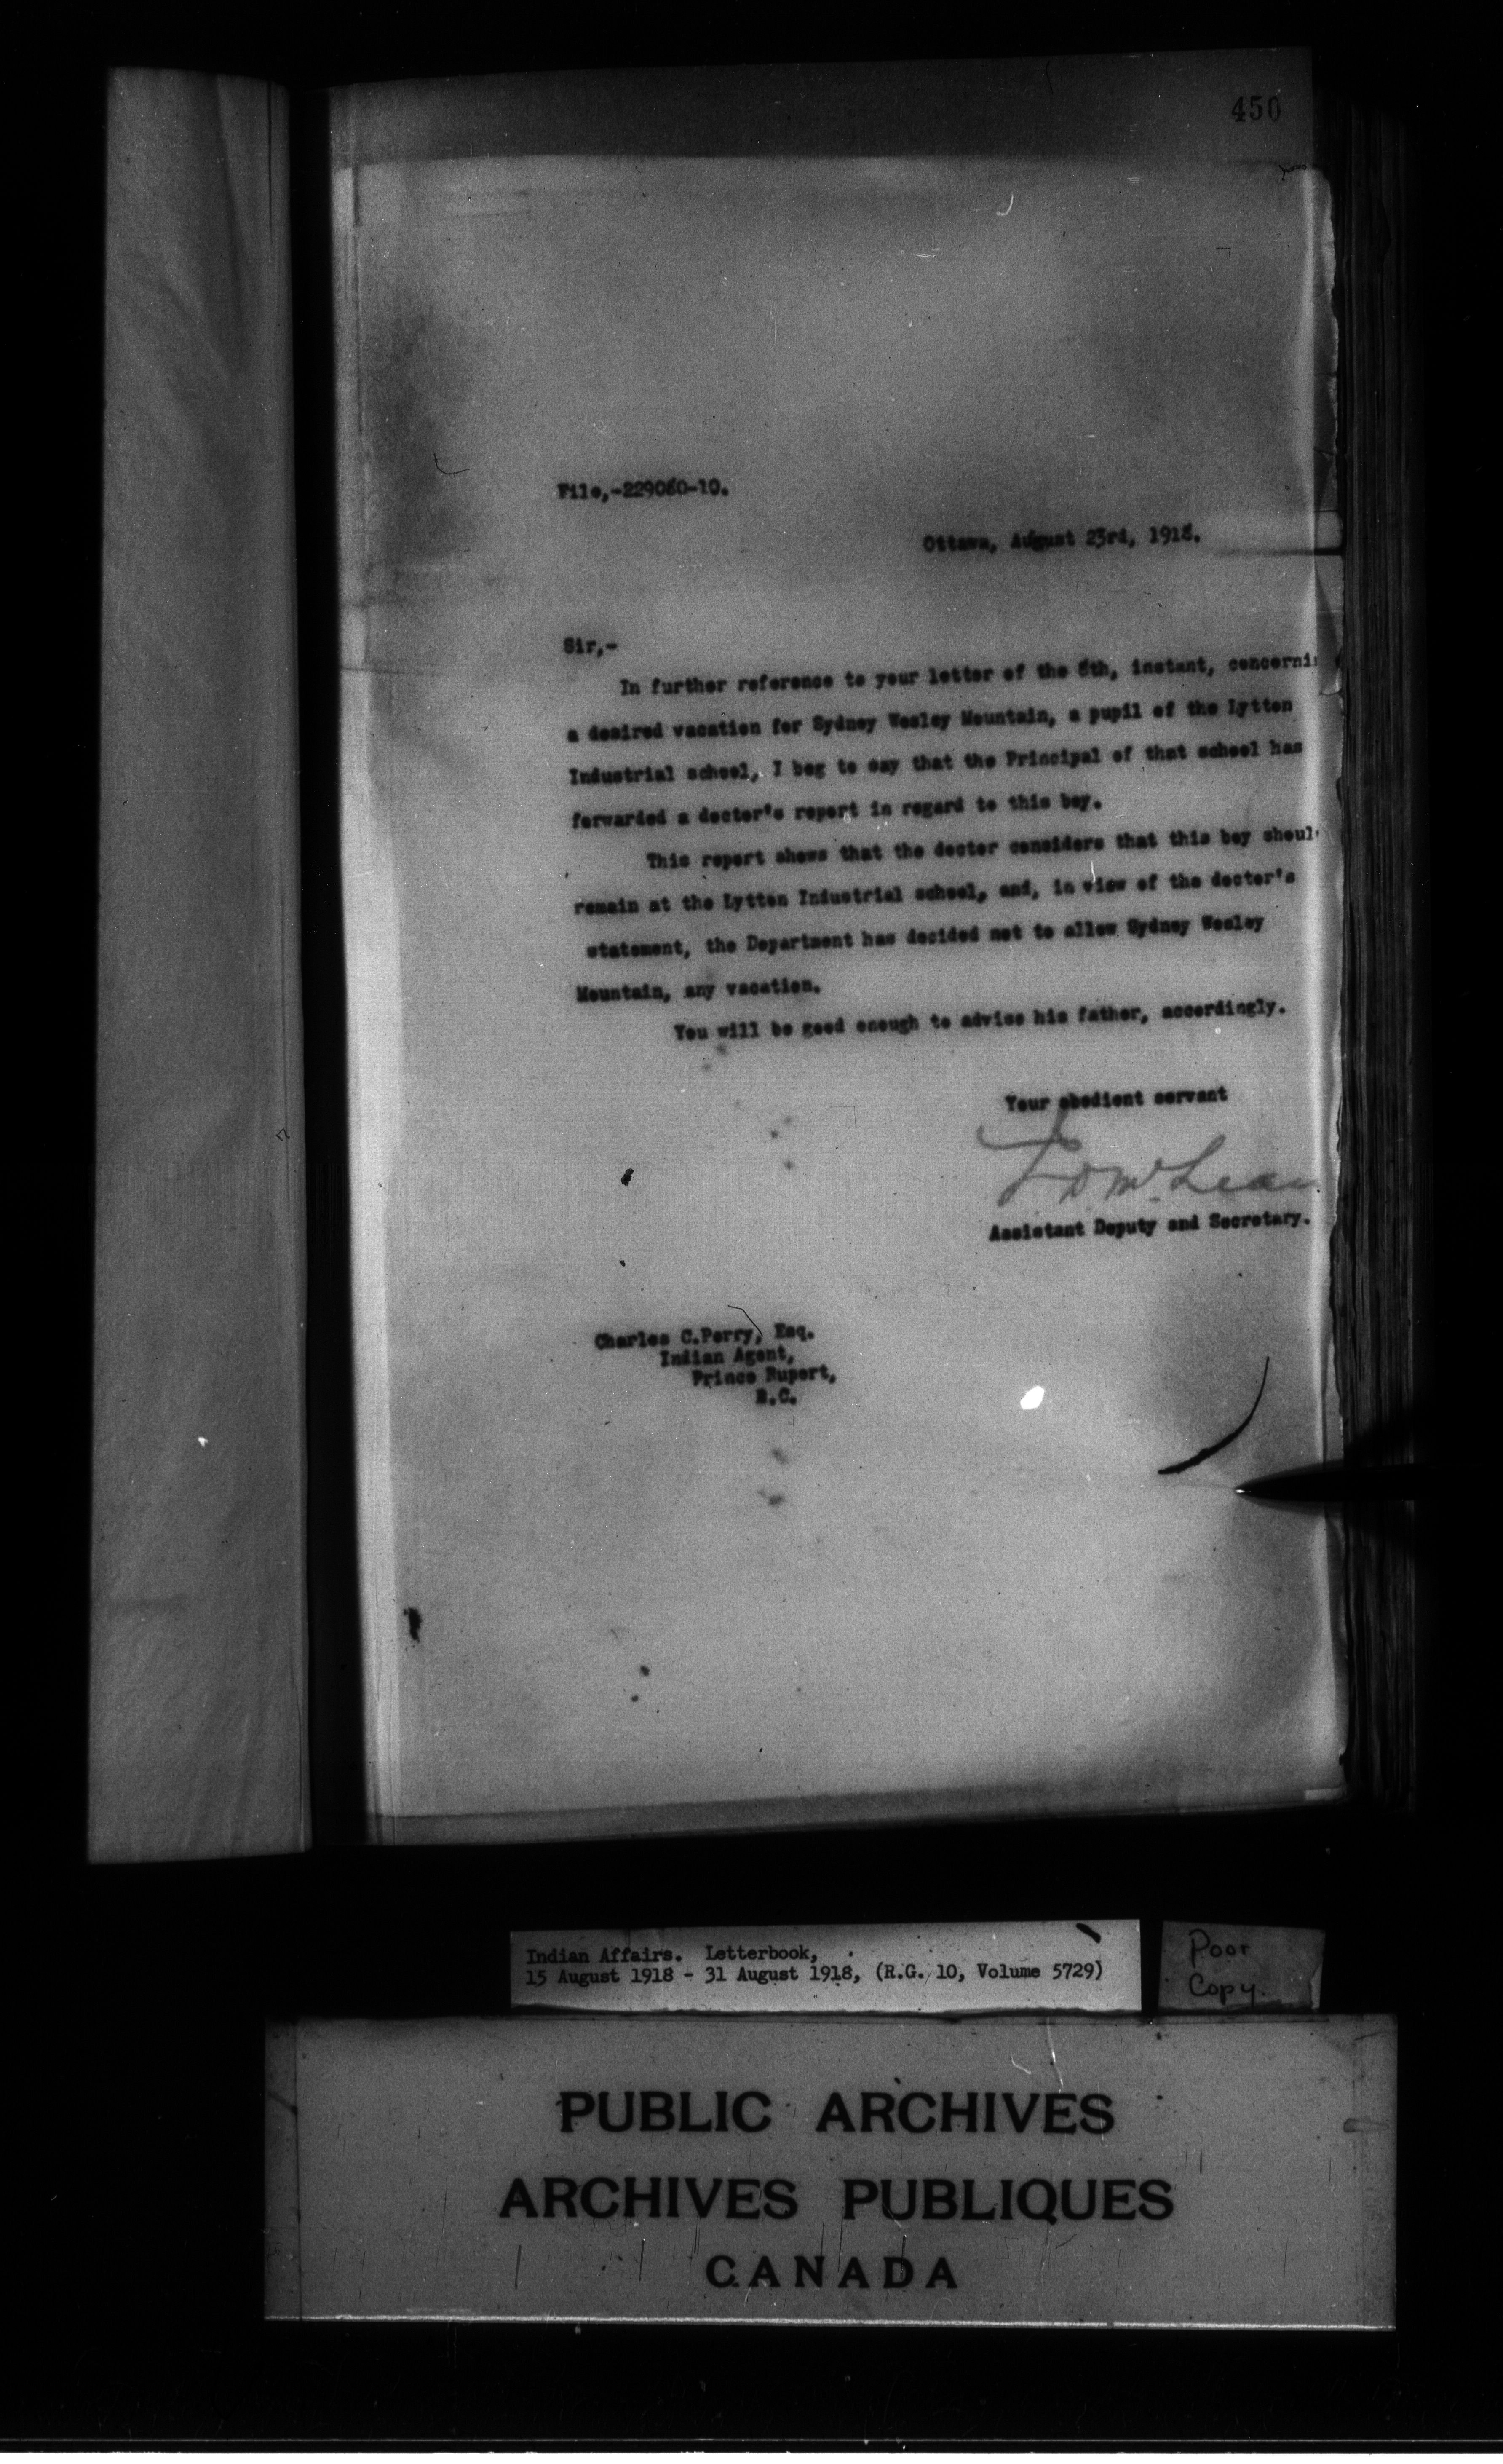 450
File,-229060-10.
Ottawa, August 23rd, 1918.
Sir,-
In further reference to your letter of the 6th, instant, concerni
a desired vacation for Sydney Wesley Mountain, a pupil of the Lytton
Industrial school, I beg to say that the Principal of that school has
forwarded a doctor's report in regard to this boy.
This report shows that the doctor considers that this boy shoul
remain at the Lytton Industrial school, and, in view of the doctor's
statement, the Department has decided not to allow Sydney Wesley
Mountain, any vacation.
You will be good enough to advise his father, accordingly.
Your obedient servant
J D McLean
Assistant Deputy and Secretary.
Charles C.Perry, Esq.
Indian Agent,
Prince Rupert,
B.C.
Indian Affairs. Letterbook,
15 August 1918 - 31 August 1918, (R.G. 10, Volume 5729)
Poor
Copy.
PUBLIC ARCHIVES
ARCHIVES PUBLIQUES
CANADA